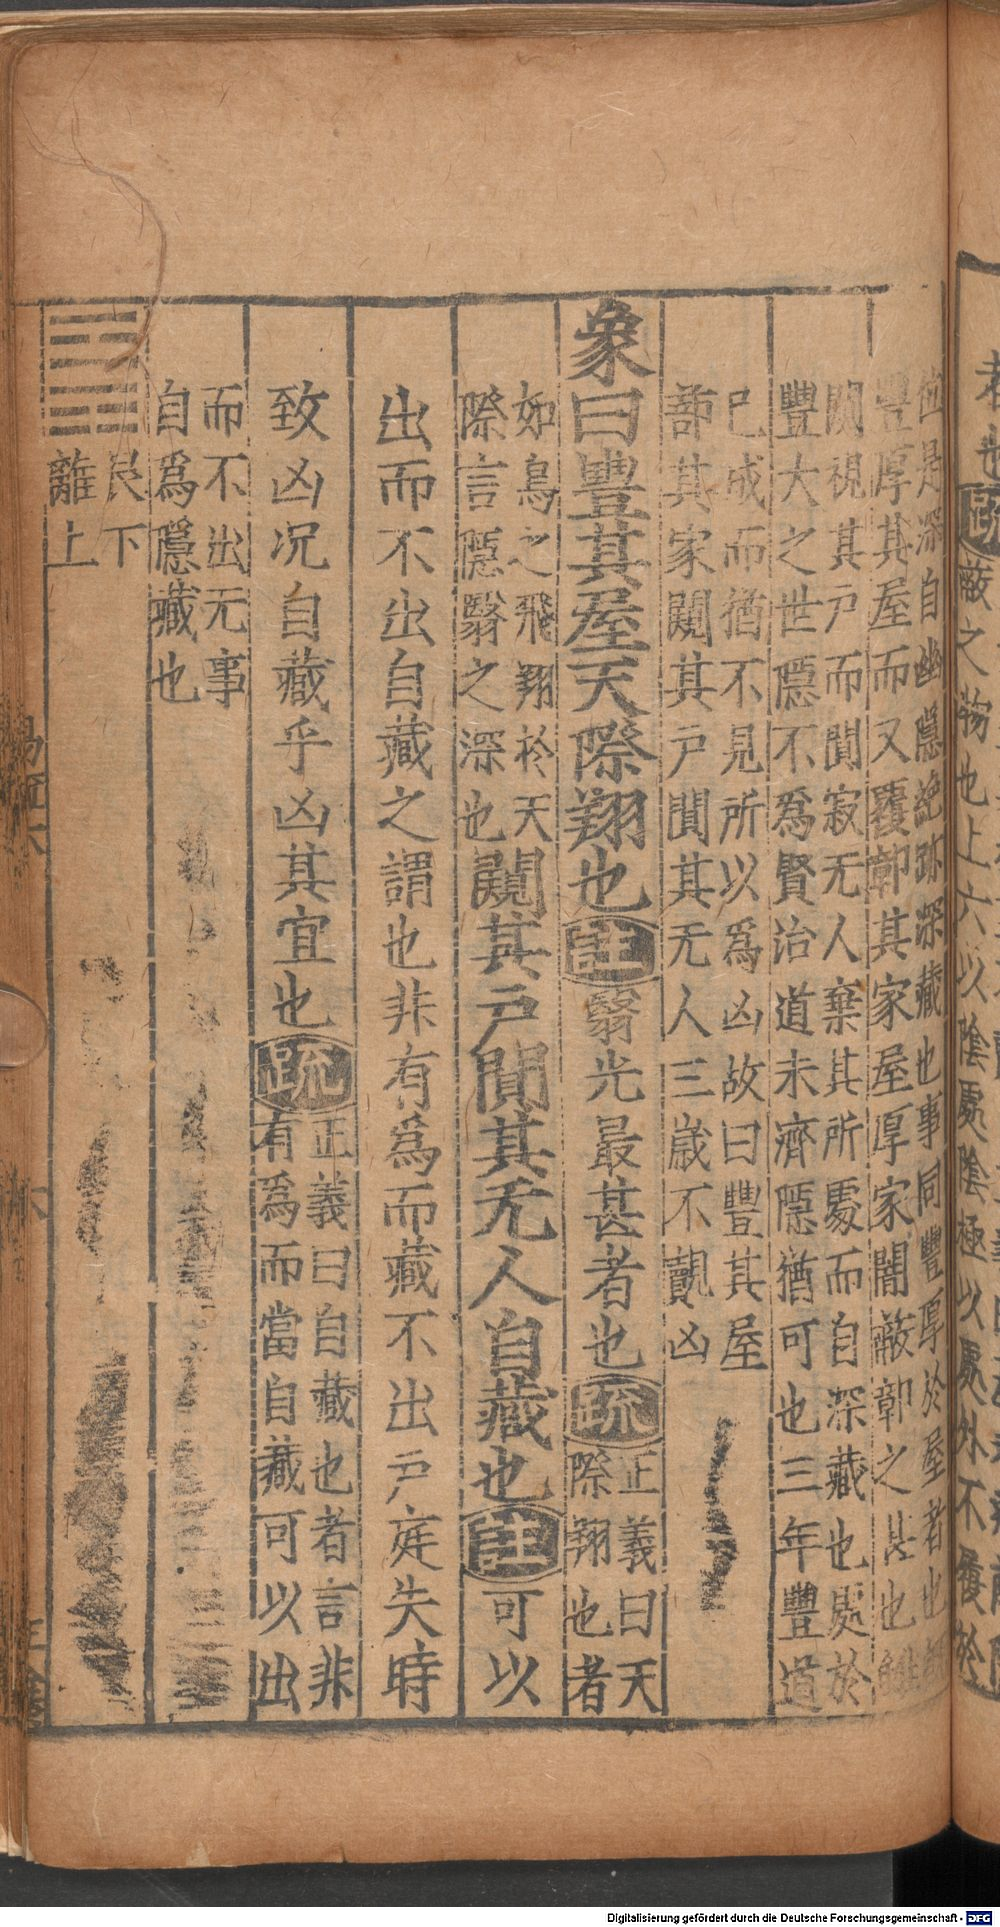 蔽之物也上六以陰處陰極以處外不履於
位是深自幽隱絶跡深藏也事同豐厚於屋者也旣
豐厚其屋而又覆鄣其家屋厚家闇蔽鄣之甚也雖
闚視其戶而闃寂无人棄其所處而自深藏也處於
豐大之世隱不爲賢治道未濟隱猶可也三年豐道
已成而猶不見所以爲凶故曰豐其屋
蔀其家闚其戶闃其无人三歲不覿凶
象曰豐其屋天際翔也註翳光最甚者也疏正義曰天
際翔也者
如鳥之飛翔於天
際言隱翳之深也闚其戶闃其无人自藏也註可以
出而不出自藏之謂也非有爲而藏不出戶庭失時
致凶况自藏乎凶其宜也疏正義曰自藏也者言非
有爲而當自藏可以出
而不出无事
自爲隱藏也
艮下
離上
Digitalisierung gefördert durch die Deutsche Forschungsgemeinschaft - DFG